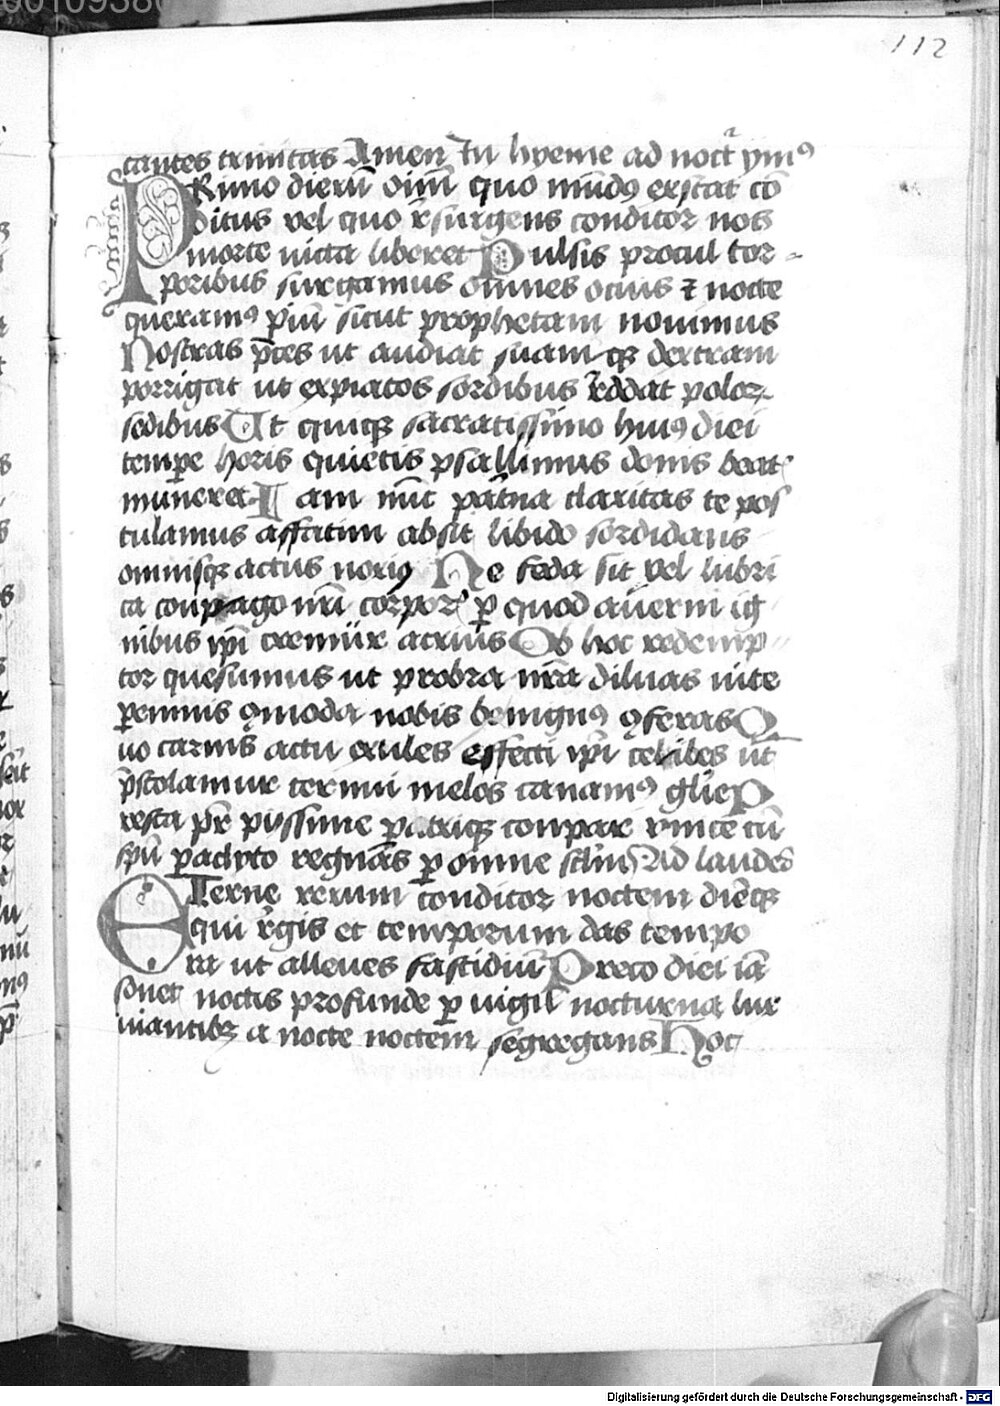 112
cantes trinitas Amen In hyeme ad noct̄ ymꝰ
PRimo dierū oīm quo mūdꝰ exstat cō
ditus vel quo r̄surgens conditor nos
morte victa liberet Pulsis procul tor-
poribus surgamus omnes ocius ⁊ nocte
queramꝰ piū sicut prophetam nouimus
Nostras p̄ces ut audiat suam qꝫ dextram
porrigat ut expiatos sordibus r̄ddat poloꝝ
sedibus Ut quiqꝫ sacratissimo huiꝰ diei
tempe horis quietis psallimus donis beatꝭ
muneret Iam nūc pat̄na claritas te pos
tulamus affatim absit libido sordidans
omnisqꝫ actus noxiꝰ Ne feda sit vel lubri
ca conpago nrī corporꝭ ꝑ quod auerni ig
nibus ip̄i cremur acrius Ob hoc redemp-
tor quesumus ut probra nrā diluas uite
ꝑennis ꝯmoda nobis benignꝰ ꝯferas Q
uo carnis actu exules effecti ip̄i celibes ut
p̄stolamur cernui melos canamꝰ glīe P
resta pr̄ pyssime patriqꝫ conpar vnice cū
spū paclyto regnās ꝑ omne sclm̄ Ad laudes
ETerne rerum conditor noctem diēqꝫ
qui r̄gis et temporum das tempo
ra ut alleues fastidiū Preco diei iā
sonet noctis profunde ꝑ uigil nocturna lux
uiantibꝫ a nocte noctem segregans Hoc
Digitalisierung gefördert durch die Deutsche Forschungsgemeinschaft - DFG